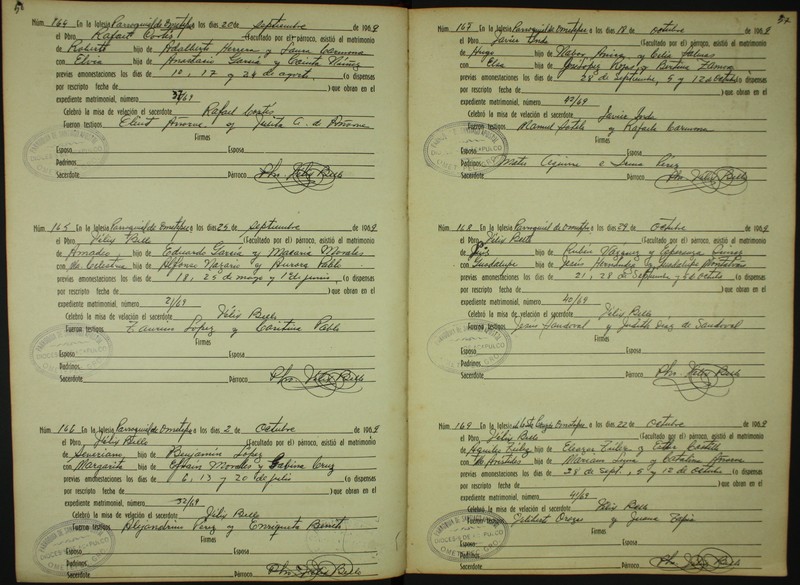 Núm. 164 En la Iglesia Parroquial de Ometepec a los días 20 de Septiembre de 1969
el Pbro. Rafael Cortés (Facultado por el) párroco, asistió al matrimonio
de Roberto hijo de Adalberto Herrera y Laura Carmona
con Elvia hija de Amadario García y
previas amonestaciones los días de 10, 17 y 24 de agosto (o dispensas
por rescripto fecha de que obran en el
expediente matrimonial, número 37/69
Celebró la misa de velación el sacerdote Rafael Cortés
Fueron testigos Añorve y Julita A. de Añorve
Firmas
Esposo Esposa
Padrinos
Sacerdote Párroco Pbro. Félix Bello
Núm. 165 En la Iglesia Parroquial de Ometepec a los días 25 de Septiembre de 1969
el Pbro. Félix Bello (Facultado por el) párroco, asistió al matrimonio
de Amadeo hijo de Eduardo García y Macaria Morales
con Ma Celestina hija de Alfonso Nazario y Aurora Pablo
previas amonestaciones los días de 18, 25 de mayo y 1° de junio (o dispensas
por rescripto fecha de que obran en el
expediente matrimonial, número 21/69
Celebró la misa de velación el sacerdote Félix Bello
Fueron testigos Tauruno López y Pablo
Firmas
Esposo Esposa
Padrinos
Sacerdote Párroco Pbro. Félix Bello
Núm. 166 En la Iglesia Parroquial de Ometepec a los días 2 de Octubre de 1969
el Pbro. Félix Bello (Facultado por el) párroco, asistió al matrimonio
de Severiano hijo de Benjamín López
con Margarita hija de Efraín Morales y Sabina Cruz
previas amonestaciones los días de 6, 13 y 20 de julio (o dispensas
por rescripto fecha de que obran en el
expediente matrimonial, número 32/69
Celebró la misa de velación el sacerdote Félix Bello
Fueron testigos Alejandrino Pérez y Enriqueta Benet
Firmas
Esposo Esposa
Padrinos
Sacerdote Párroco Pbro. Félix Bello
Núm. 167 En la Iglesia Parroquial de Ometepec a los días 18 de octubre de 1969
el Pbro. Javier (Facultado por el) párroco, asistió al matrimonio
de Hugo hijo de y Celia Salinas
con Elsa hija de Guadalupe Rojas y Bertina Zamora
previas amonestaciones los días de 28 de Septiembre, 5 y 12 de Octubre (o dispensas
por rescripto fecha de que obran en el
expediente matrimonial, número 42/69
Celebró la misa de velación el sacerdote Javier
Fueron testigos Manuel Sotelo y Rafaela Carmona
Firmas
Esposo Esposa
Padrinos Mateo Aguirre e Irma Pérez
Sacerdote Párroco Pbro. Félix Bello
Núm. 168 En la Iglesia Parroquial de Ometepec a los días 29 de Octubre de 1969
el Pbro. Félix Bello (Facultado por el) párroco, asistió al matrimonio
de Luis hijo de Rubén Vázquez y Esperanza
con Guadalupe hija de Jesús Hernández y Guadalupe
previas amonestaciones los días de 21, 28 de Septiembre y de Octubre (o dispensas
por rescripto fecha de que obran en el
expediente matrimonial, número 40/69
Celebró la misa de velación el sacerdote Félix Bello
Fueron testigos Juan Sandoval y Judith Díaz de Sandoval
Firmas
Esposo Esposa
Padrinos
Sacerdote Párroco Pbro. Félix Bello
Núm. 169 En la Iglesia de la Sta Cruz de Ometepec a los días 22 de Octubre de 1969
el Pbro. Félix Bello (Facultado por el) párroco, asistió al matrimonio
de hijo de Eleazar y Ester Castillo
con Ma hija de Mariano Luna y Catalina Añorve
previas amonestaciones los días de 28 de Sept., 5 y 12 de octubre (o dispensas
por rescripto fecha de que obran en el
expediente matrimonial, número 41/69
Celebró la misa de velación el sacerdote Félix Bello
Fueron testigos Gilberto Orozco y Tapia
Firmas
Esposo Esposa
Padrinos
Sacerdote Párroco Pbro. Félix Bello